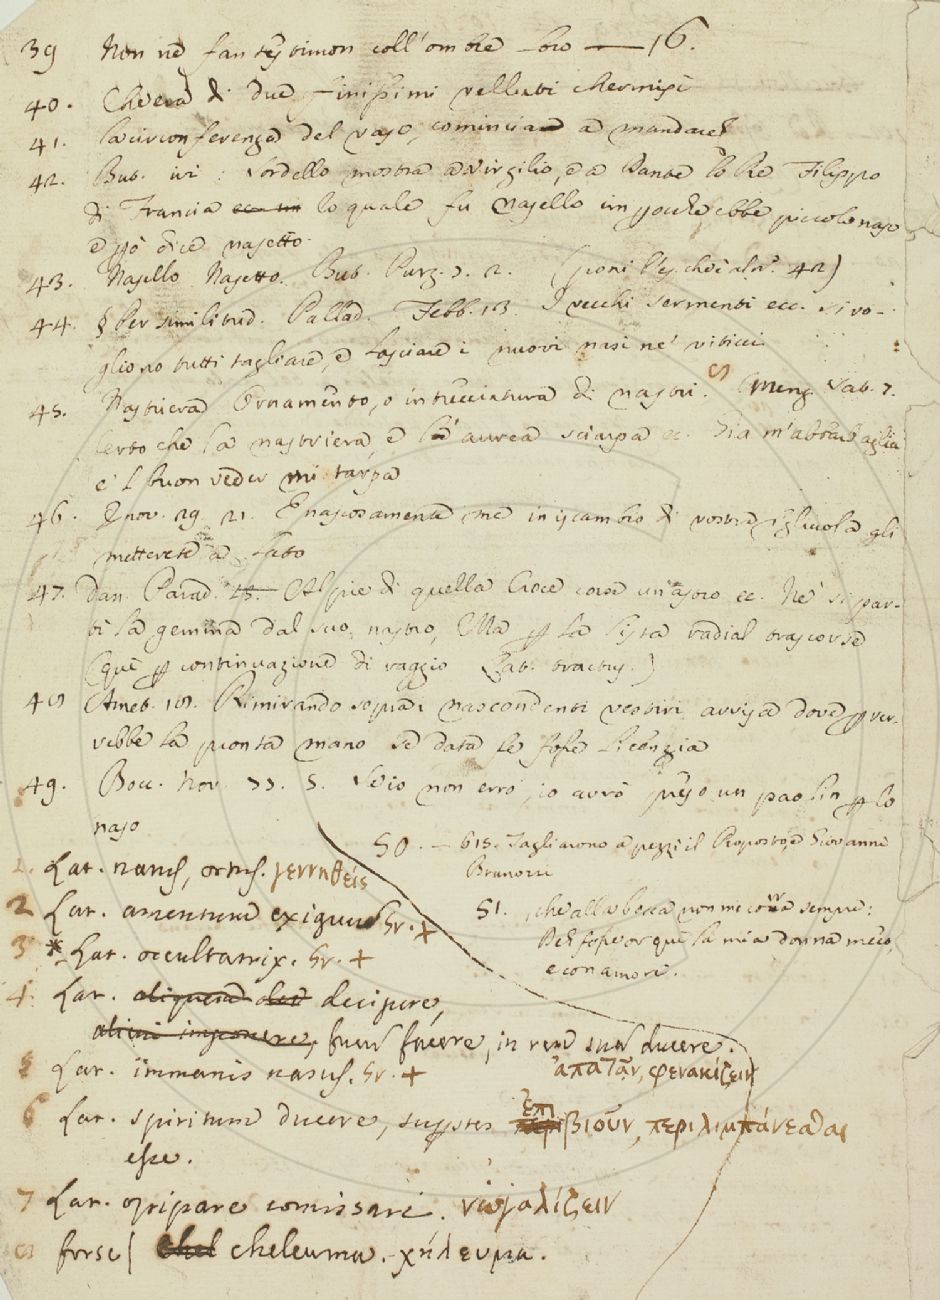 39 Non ne fan testimon coll'ombre loro — 16.
40. Ch'era di due finissimi velluti chermisi
41. la circonferenza del vaso, cominciar a mandare
42. But. ivi: Sordello mostra a Virgilio, e a Dante lo Re Filippo
di Francia lo quale fu nasello imperocch' ebbe piccolo naso
e però dice nasetto.
43. Nasello Nasetto. But. Purg. 7. 2. (poni l'es. ch'è al n.° 42)
44. § Per similitud. Pallad. Febb. 13. I vecchi sermenti ecc. si vo-
gliono tutti tagliare, e lasciare i nuovi nasi ne' viticci
45. Nastriera Ornamento, o intrecciatura di nastri. (Menz. Sat. 7.
Certo che la nastriera, e la aurea sciarpa ec. Già m'abbarbaglia
e 'l buon veder mi tarpa
46. Nov. 29. 21. E nascosamente me in iscambio di vostra figliuola gli
metterete a lato
47. Dan. Parad. Al piè di quella Croce corse un astro ec. Nè si par-
tì la gemma dal suo nastro, Ma per la lista radial trascorse
(quì per continuazione di raggio Lat. tractus.)
48 Amet. 18. Rimirando sopra i nascondenti vestiri avvisa dove per ver-
rebbe la pronta mano se data le fosse licenzia
49. Bocc. Nov. 73. 5. Se io non erro, io avrò preso un paolin per lo
naso
50. — 615. Tagliarono a pezzi il Proposto, e Giovanni
Brunozzi
51. , che alla berca non mi conta sempre:
Deh fosse or quì la mia donna meco,
e con amore.
1. Lat. natus, ortus. γεννηθείς
2 Lat. amentum exiguum Gr. +
3 * Lat. occultatrix. Gr. +
4. Lat. decipere,
fucum facere, in rem suam ducere.
ἀπατᾶν, φενακίζειν
5 Lat. immanis nasus. Gr. +
6 Lat. spiritum ducere, superstes ἐπιβιοῦν, περιλιμπάνεσθαι
esse.
7 Lat. comissari.
8 forse cheleuma. χήλευμα.